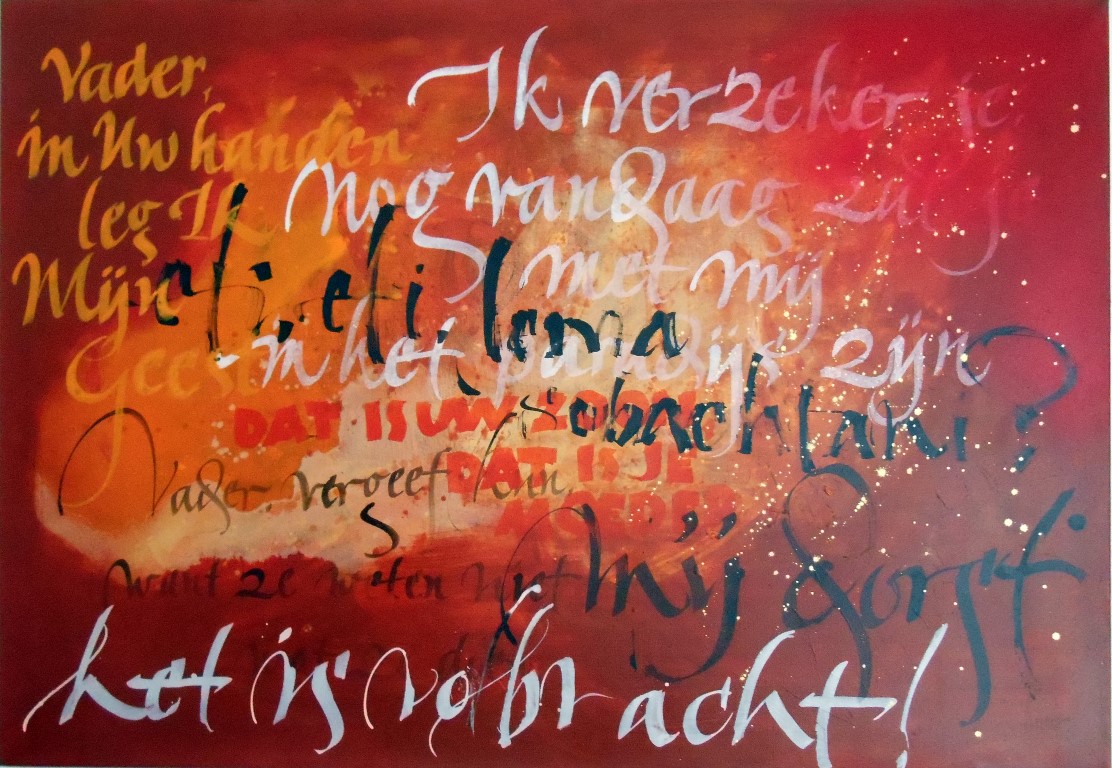 Vader,
in Uw handen
leg Ik
Mijn
Geest
Ik verzeker je
nog vandaag zal je
met mij
in het paradijs zijn
eli, eli, lema
sabachtani?
DAT IS UW ZOON
DAT IS JE
MOEDER
Vader, vergeef hun,
want ze weten niet
wat ze doen
Mij dorst
het is volbracht!